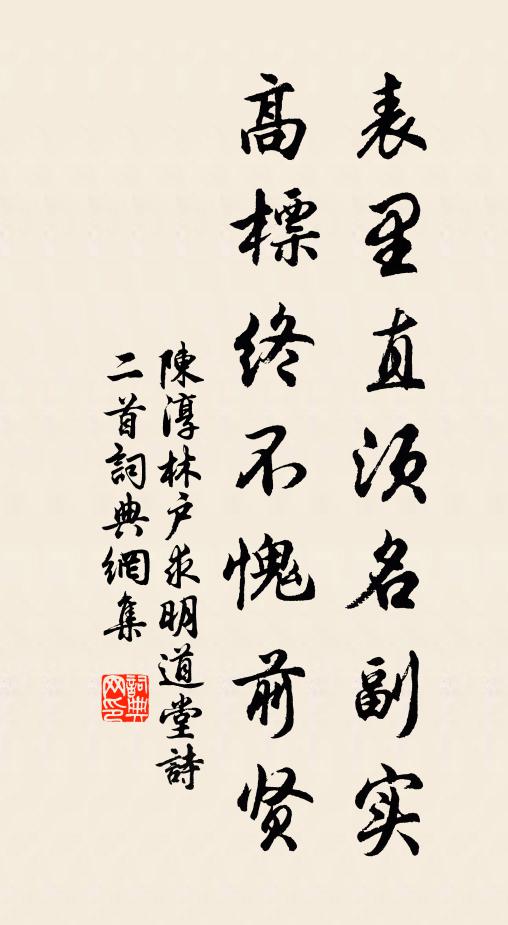 表里直须名副实
高標终不愧前贤
陳淳林户求明道堂詩
二首詞典網集
詞典網印